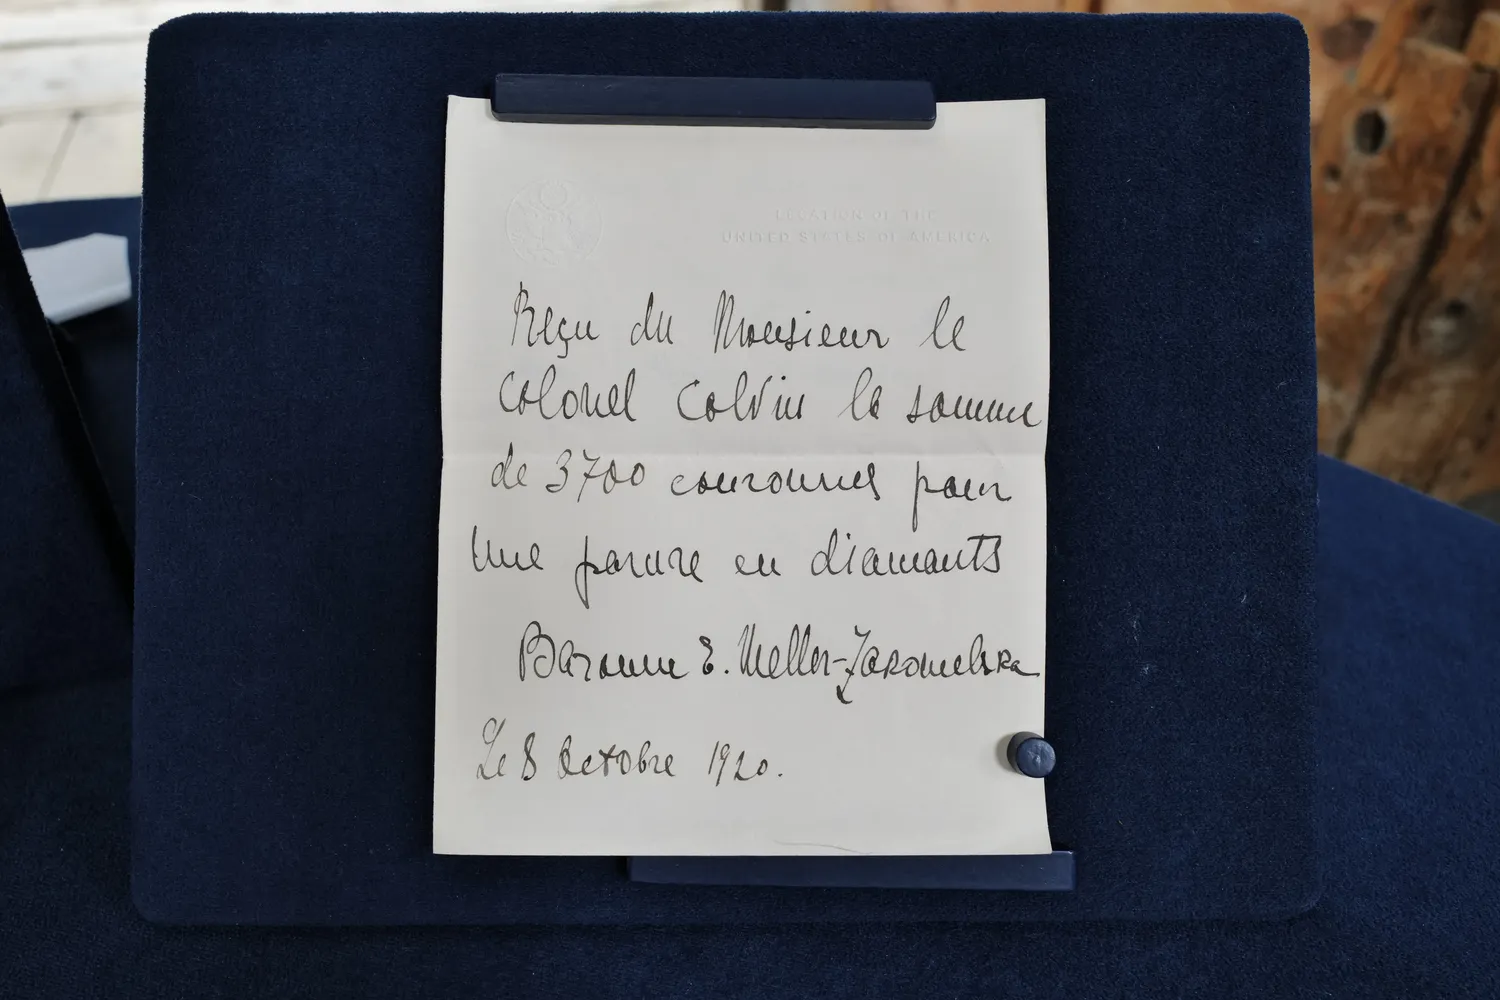 LEGATION OF THE
UNITED STATES OF AMERICA
Reçu du Monsieur le
Colonel Colvin la somme
de 3700 couronnes pour
une parure en diamants
Baronne E. Meller-Zakomelska
Le 8 Octobre 1920.